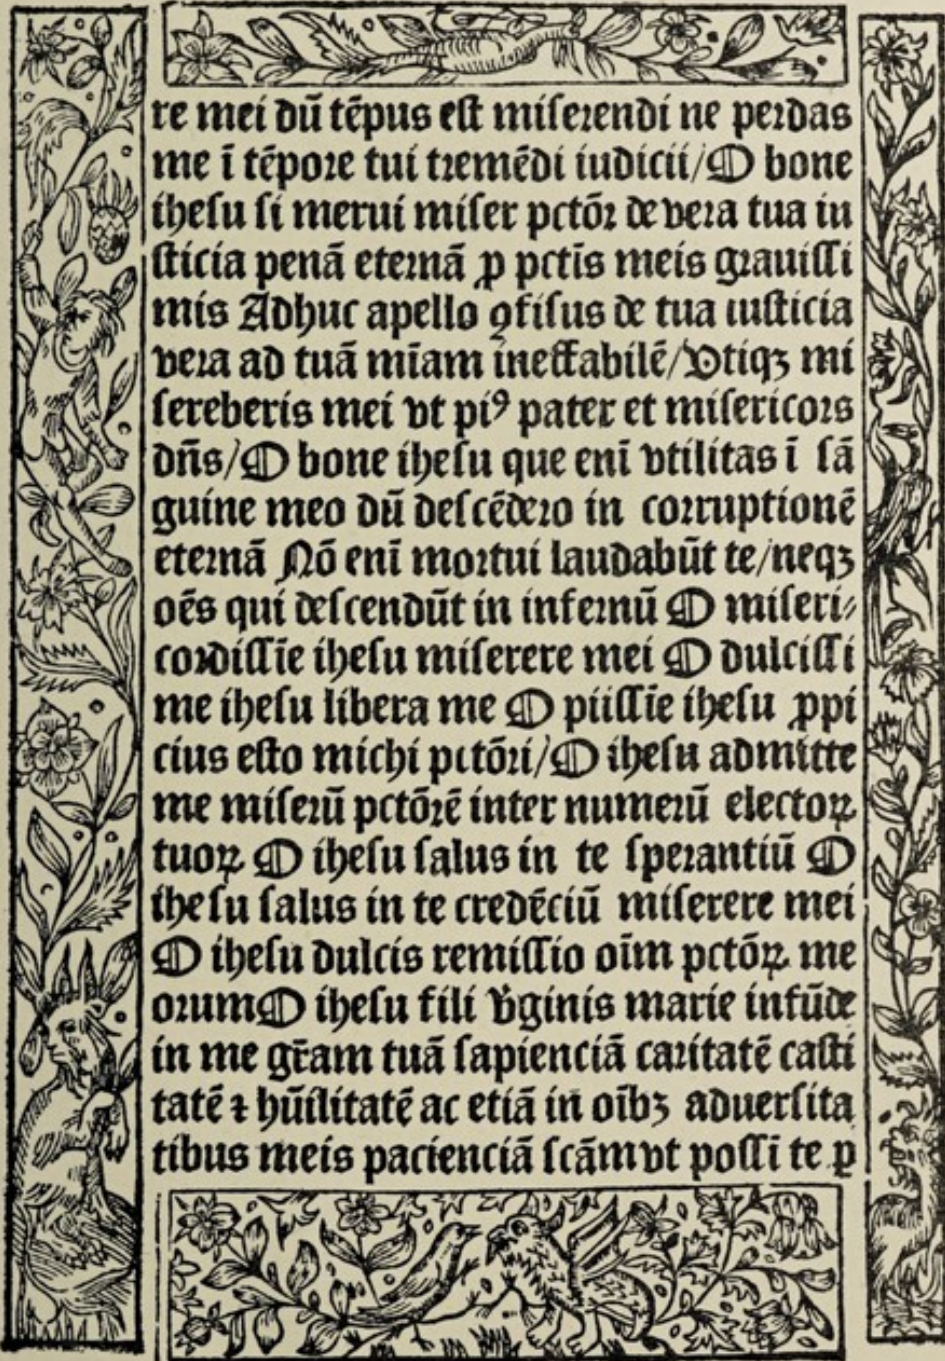 re mei dū tēpus est miserendi ne perdas
me ī tēpore tui tremēdi iudicii/O bone
ihesu si merui miser pctōr de vera tua iu
sticia penā eternā ꝓ pctīs meis grauissi
mis Adhuc apello ꝯfisus de tua iusticia
vera ad tuā mīam ineffabilē/Vtiqꝫ mi
sereberis mei vt piꝰ pater et misericors
dn̄s/O bone ihesu que enī vtilitas ī sā
guine meo dū descēdero in corruptionē
eternā Nō enī mortui laudabūt te/neqꝫ
oēs qui descendūt in infernū O miseri⸗
cordissīe ihesu miserere mei O dulcissi
me ihesu libera me O piissīe ihesu ꝓpi
cius esto michi pctōri/O ihesu admitte
me miserū pctōrē inter numerū electoꝝ
tuoꝝ O ihesu salus in te sperantiū O
ihesu salus in te credēciū miserere mei
O ihesu dulcis remissio oīm pctōꝝ me
orum O ihesu fili v̓ginis marie infūde
in me gr̄am tuā sapienciā caritatē casti
tatē ⁊ hūīlitatē ac etiā in oībꝫ aduersita
tibus meis pacienciā scām vt possī te ꝑ